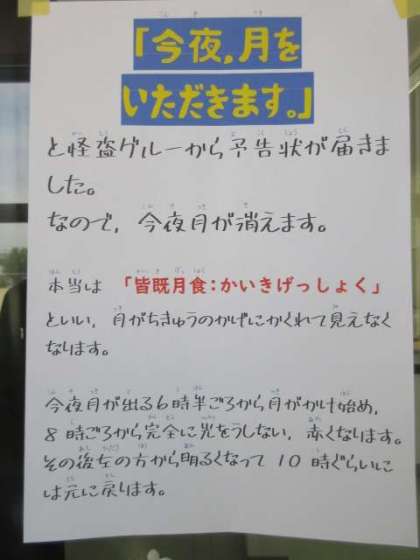 「今夜,月を
いただきます。」
と怪盗グルーから予告状が届きま
した。
なので,今夜月が消えます。
本当は「皆既月食:かいきげっしょく」
といい,月がちきゅうのかげにかくれて見えなく
なります。
今夜月が出る6時半ごろから月がかけ始め,
8時ごろから完全に光をうしない,赤くなります。
その後左の方から明るくなって10時ぐらいに
は元に戻ります。